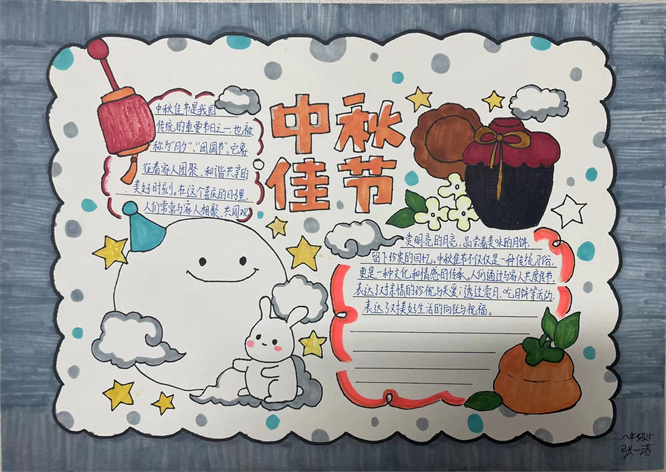 中秋
佳节
中秋佳节是我国
传统的重要节日之一也被
称为"月夕"、"团圆节",它象
征着家人团聚、和谐共享的
美好时刻。在这个喜庆的日子里,
人们常常与家人相聚,共同观
赏明亮的月亮,品尝着美味的月饼,
留下珍贵的回忆。中秋佳节不仅仅是一种传统习俗,
更是一种文化和情感的传承。人们通过与家人共度佳节,
表达了对亲情的珍视与关爱;透过赏月、吃月饼等活动,
表达了对美好生活的向往与祝福。
张一诺